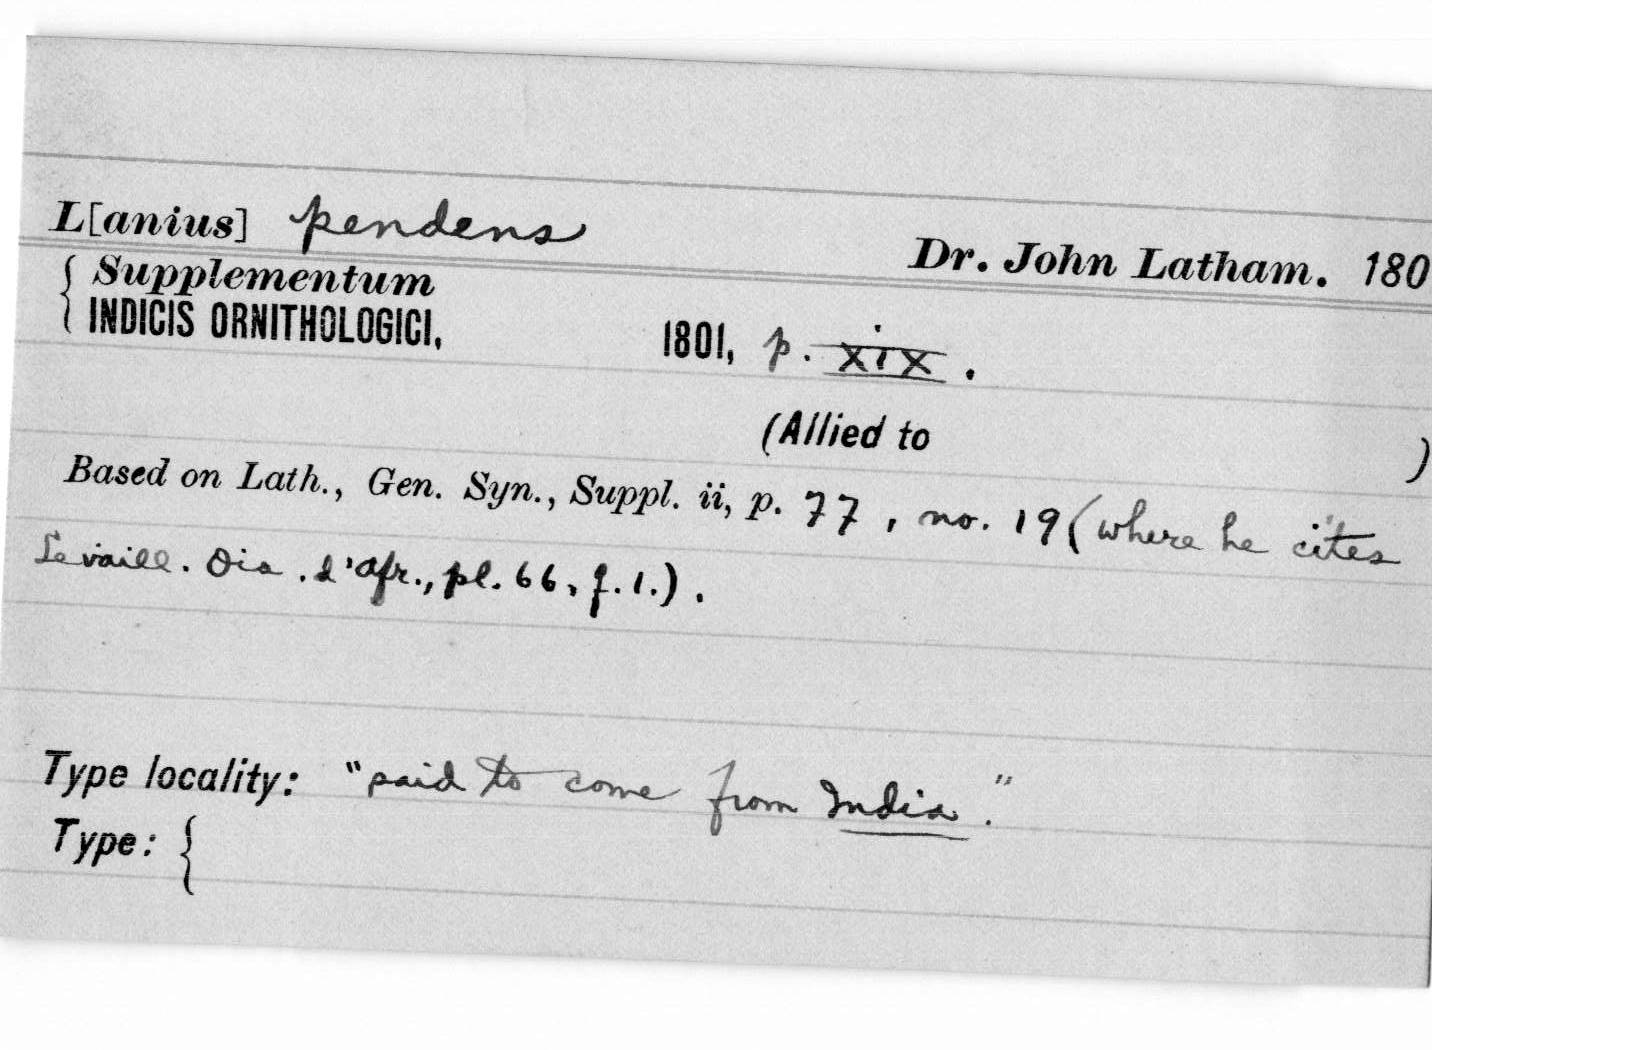 L[anius] pendens
Dr. John Latham. 180
{ Supplementum
INDICIS ORNITHOLOGICI, 1801, p. xix.
(Allied to )
Based on Lath., Gen. Syn., Suppl. ii, p. 77, no. 19 (where he cites
Levaill. Ois. d'Afr., pl. 66, f. 1.).
Type locality: "said to come from India."
Type: {